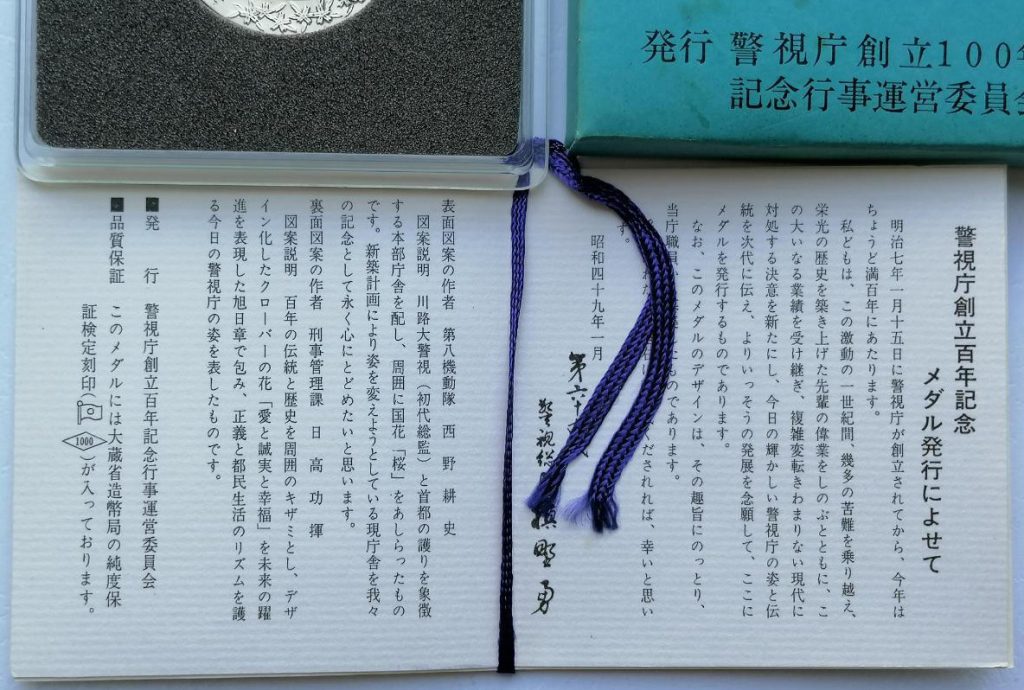 発行 警視庁創立100年
記念行事運営委員会
警視庁創立百年記念
メダル発行によせて
明治七年一月十五日に警視庁が創立されてから、今年は
ちょうど満百年にあたります。
私どもは、この激動の一世紀間、幾多の苦難を乗り越え、
栄光の歴史を築き上げた先輩の偉業をしのぶとともに、こ
の大いなる業績を受け継ぎ、複雑変転きわまりない現代に
対処する決意を新たにし、今日の輝かしい警視庁の姿と伝
統を次代に伝え、よりいっそうの発展を念願して、ここに
メダルを発行するものであります。
なお、このメダルのデザインは、その趣旨にのっとり、
当庁職員 ものであります。
くだされれば、幸いと思い
ます。
昭和四十九年一月
第六十
警視総 槙野勇
表面図案の作者 第八機動隊 西野耕史
図案説明 川路大警視(初代総監)と首都の護りを象徴
する本部庁舎を配し、周囲に国花「桜」をあしらったもの
です。新築計画により姿を変えようとしている現庁舎を我々
の記念として永く心にとどめたいと思います。
裏面図案の作者 刑事管理課 日高功揮
図案説明 百年の伝統と歴史を周囲のキザミとし、デザ
イン化したクローバーの花「愛と誠実と幸福」を未来の躍
進を表現した旭日章で包み、正義と都民生活のリズムを護
る今日の警視庁の姿を表したものです。
■発行 警視庁創立百年記念行事運営委員会
■品質保証 このメダルには大蔵省造幣局の純度保
証検定刻印( 1000 )が入っております。